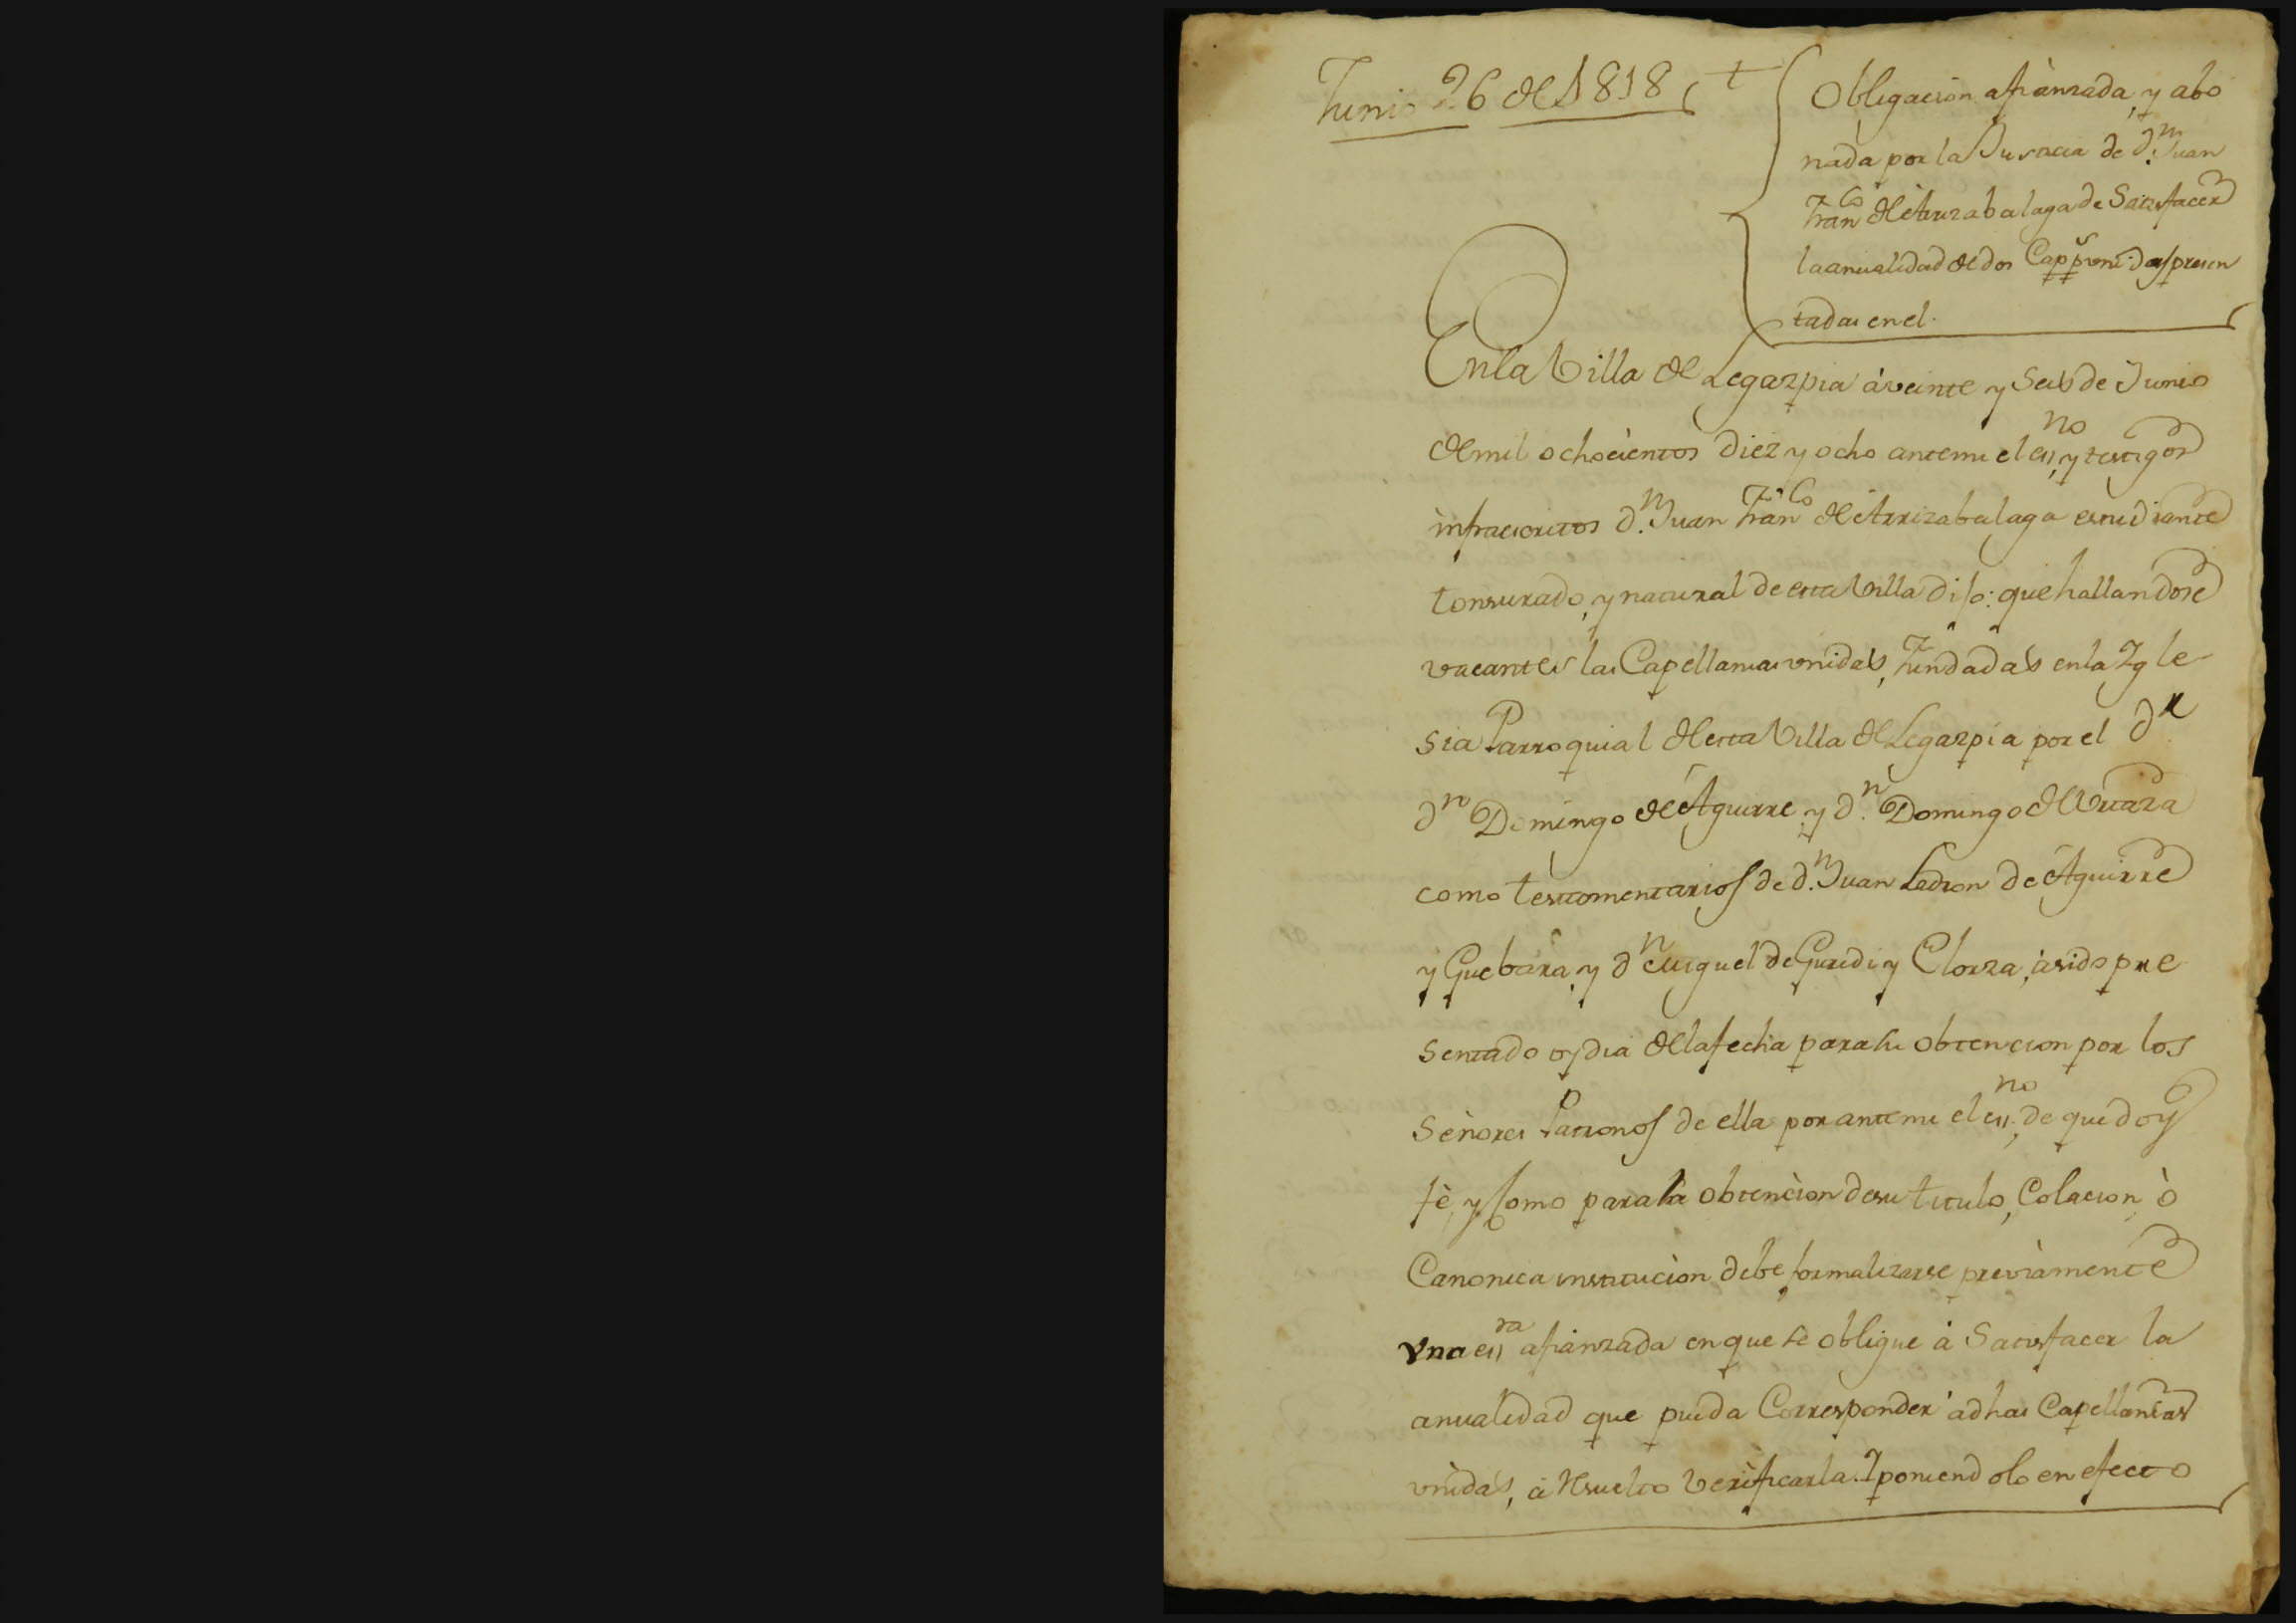 Junio 26 de 1818 †
Obligacion afianzada, y abo
nada por la Justicia de d.n Juan
Fran.co de Arrizabalaga de Satisfacer
la anualidad de dos Capp.s vnidas presen
tadas en el.
En la Villa de Legazpia à veinte y Seis de Junio
de mil ochocientos diez y ocho ante mi el es.no y testigos
infracscritos d.n Juan Fran.co de Arrizabalaga estudiante
tonsurado, y natural de esta Villa dijo: que hallandose
vacantes las Capellanias vnidas, fundadas en la Ygle
sia Parroquial de esta Villa de Legazpia por el d.r
d.n Domingo de Aguirre y d.n Domingo de Vicaza
como testamentarios de d.n Juan Ladron de Aguirre
y Guebara, y d.n Miguel de Guridi y Elorza, à sido pre
sentado oy dia de la fecha para su obtencion por los
Señores Patronos de ella por ante mi el es.no de que doy
fè, y como para la obtencion de su titulo, Colacion, ò
Canonica institucion debe formalizarse previamente
Vna es.ra afianzada en que se obligue à Satisfacer la
anualidad que pueda Corresponder à dhas Capellanias
vnidas, à resuelto Verificarla. Y poniendolo en efecto